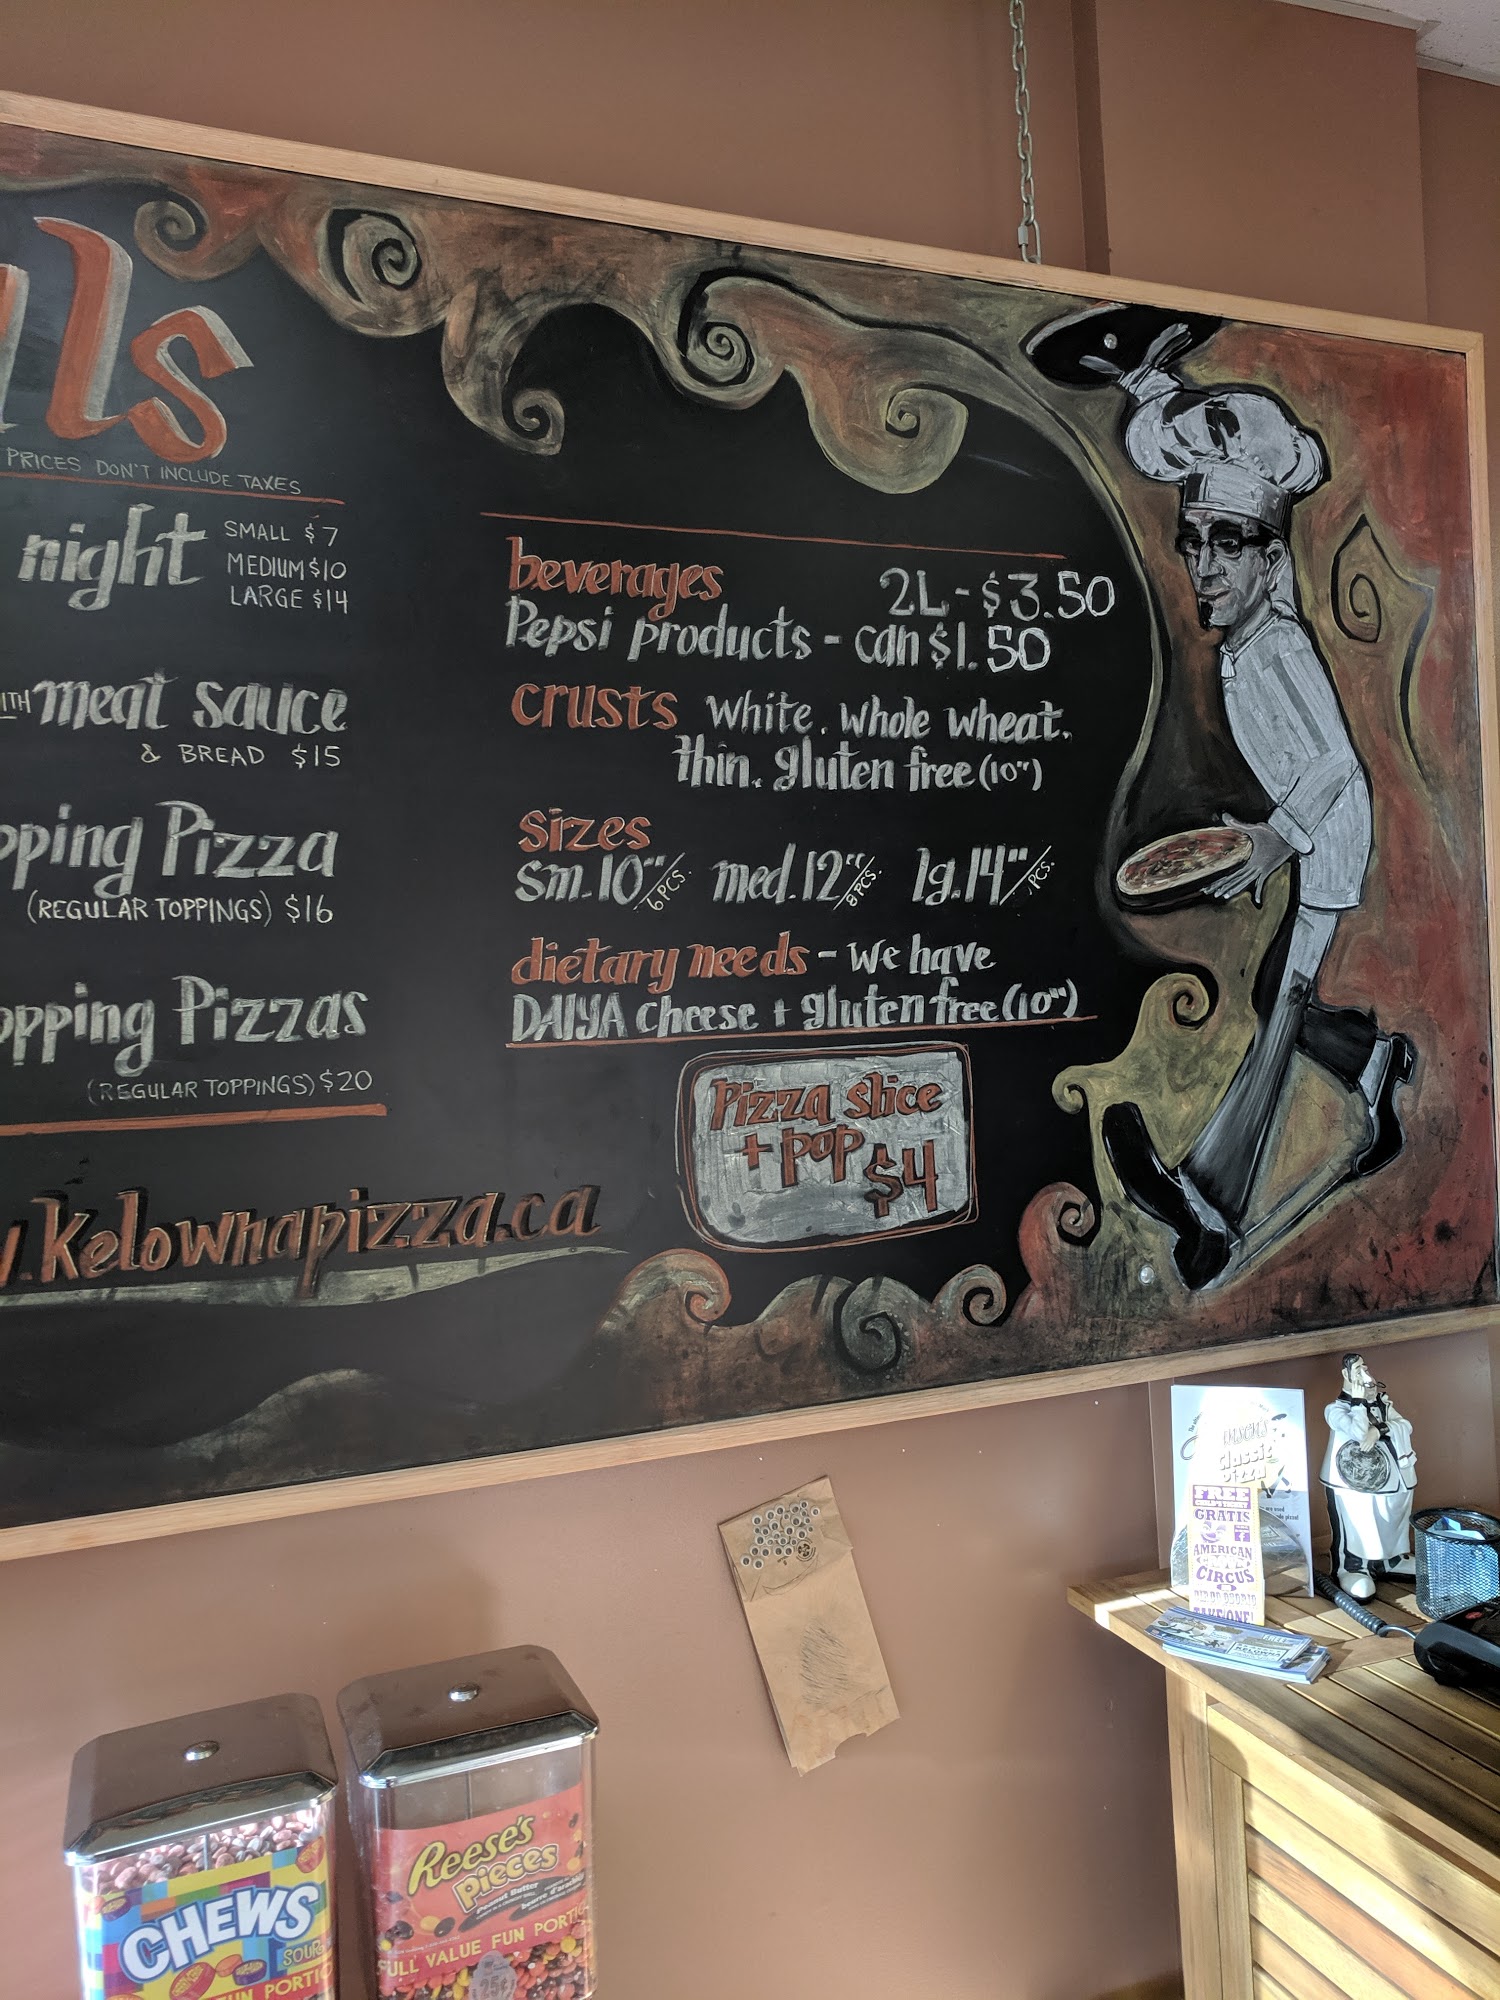 als
PRICES DON'T INCLUDE TAXES
night
SMALL $7
MEDIUM $10
LARGE $14
WITH meat sauce
& BREAD $15
pping Pizza
(REGULAR TOPPINGS) $16
opping Pizzas
(REGULAR TOPPINGS) $20
w.Kelownapizza.ca
beverages 2L - $3.50
Pepsi products - can $1.50
crusts white. whole wheat.
thin. gluten free (10")
sizes
sm. 10" 6 PCS. med. 12" 8 PCS. lg. 14" PCS.
dietary needs - we have
DAIYA cheese + gluten free (10")
Pizza slice
+ pop $4
classic
pizza
FREE
GRATIS
AMERICAN
CIRCUS
TAKE ONE!
CHEWS
SOUR
FUN PORTIO
Reese's
Pieces
Peanut Butter
FULL VALUE FUN PORTIO
25¢